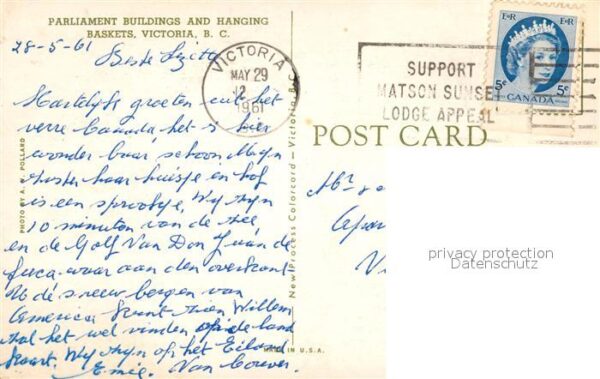 PARLIAMENT BUILDINGS AND HANGING
BASKETS, VICTORIA, B. C.
28-5-61
Beste
Hartelijk groeten uit het
verre Canada, het is hier
wonder baar schoon Mijn
zuster haar huisje en hof
is een sprookje, Wij zijn
10 minuten van de zee
en de Golf Van Don Juan de
fuca waar aan den overkant
U de sneeuw bergen van
America kunt zien Willem
zal het wel vinden op de land
kaart. Wij zijn op het Eiland
Van Couver.
PHOTO BY A. POLLARD
New Process Colorcard - Victoria B-C
MADE IN U.S.A.
VICTORIA
MAY 29
12
1961
B.C.
SUPPORT
MATSON SUNSET
LODGE APPEAL
E R
E R
5c
5c
CANADA
POST CARD
Mr
Apar
V
privacy protection
Datenschutz